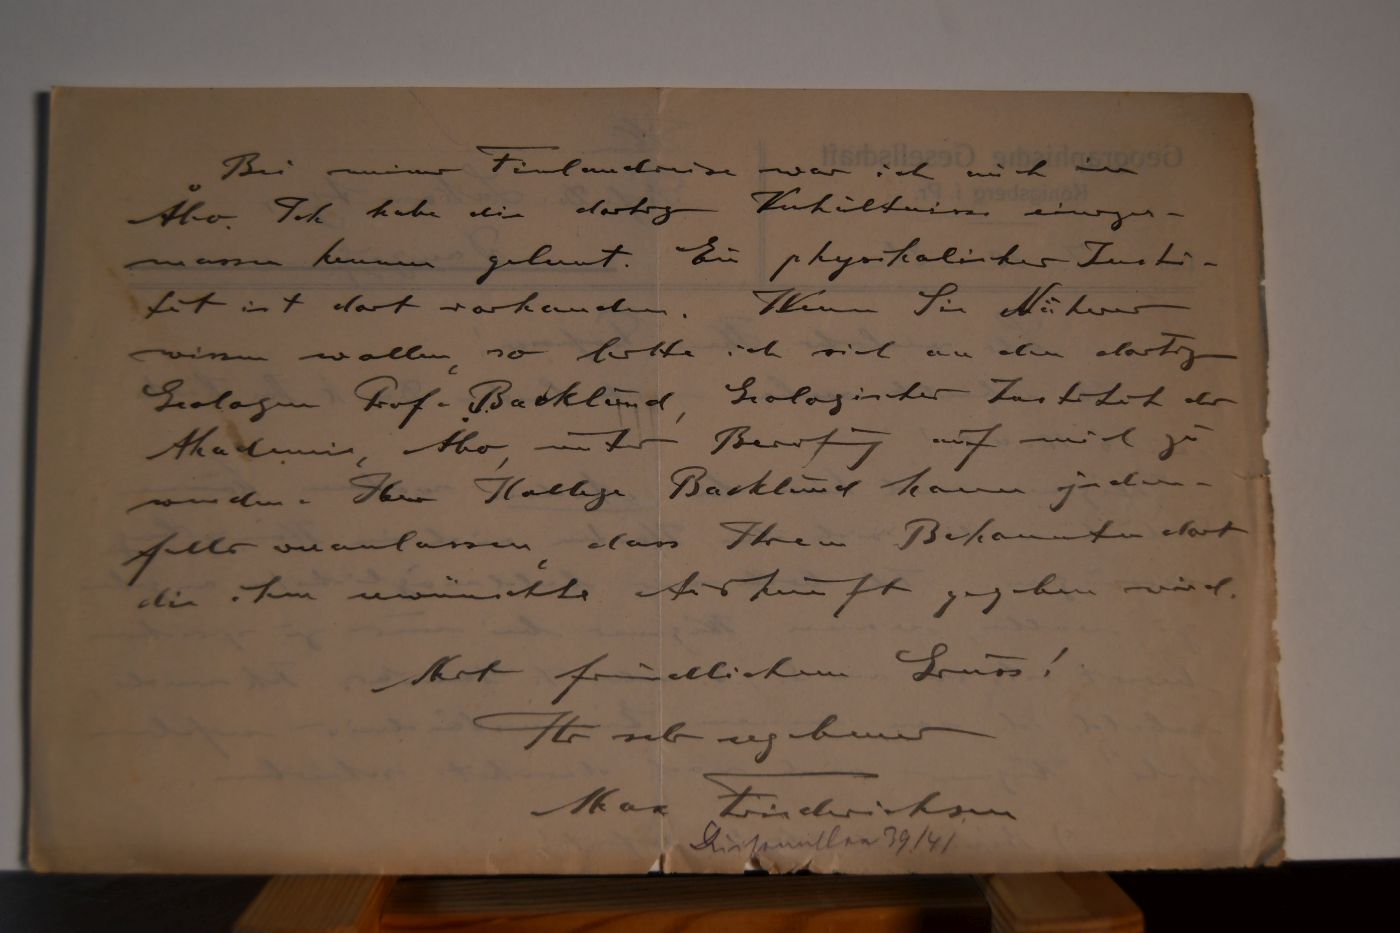 Bei meiner Finlandreise war ich auch in
Åbo. Ich habe die dortig Verhältnisse einiger-
massen kennen gelernt. Ein physikalischer Insti-
tut ist dort vorhanden. Wenn Sie Näheres
wissen wollen, so bitte ich sich an den dortig
Geologen Prof. Backlund, Geologischer Institut der
Akademie, Åbo, unter Berufung auf mich zu
wenden. Herr Kollege Backlund kann jeden-
falls veranlassen, dass Ihrem Bekannten dort
die ihm erwünschte Auskunft gegeben wird.
Mit freundlichem Gruss!
Ihr sehr ergebener
Max Friederichsen
39/41
Geographische Gesellschaft
Königsberg i. Pr.